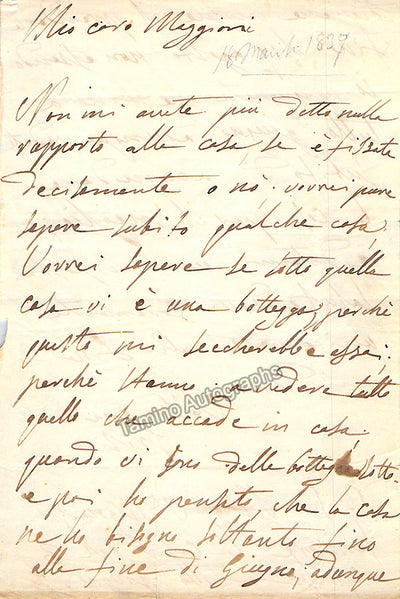 Mio caro Maggioni
18 March 1837
Non mi avete più detto nulla
rapporto alla casa, se è fissata
decisamente o nò. vorrei pure
sapere subito qualche cosa,
Vorrei sapere se sotto quella
casa vi è una bottega, perchè
questo mi seccherebbe assai;
perchè stanno a vedere tutto
quello che accade in casa,
quando vi sono delle botteghe sotto.
e poi ho pensato, che la casa
ne ho bisogno soltanto fino
alla fine di Giugno, adunque
Tamino Autographs